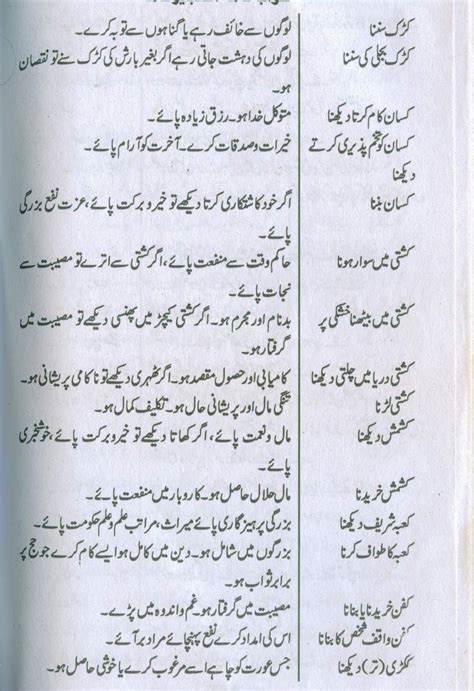 کڑک سننا لوگوں سے خائف رہے یا گناہوں سے توبہ کرے۔
کڑک بجلی کی سننا لوگوں کی دہشت جاتی رہے اگر بغیر بارش کی کڑک سنے تو نقصان
ہو۔
کسان کام کرتا دیکھنا متوکل خدا ہو۔ رزق زیادہ پائے۔
کسان کو تخم پذیری کرتے خیرات و صدقات کرے۔ آخرت کو آرام پائے۔
دیکھنا
کسان بننا اگر خود کاشتکاری کرتا دیکھے تو خیر و برکت پائے، عزت نفع بزرگی
پائے۔
کشتی میں سوار ہونا حاکم وقت سے منفعت پائے، اگر کشتی سے اترے تو مصیبت سے
نجات پائے۔
کشتی میں بیٹھنا خشکی پر بدنام اور مجرم ہو۔ اگر کشتی کیچڑ میں پھنسی دیکھے تو مصیبت میں
گرفتار ہو۔
کشتی دریا میں چلتی دیکھنا کامیابی اور حصول مقصد ہو۔ اگر ٹھہری دیکھے تو ناکامی پریشانی ہو۔
کشتی لڑنا تنگی مال اور پریشانی حال ہو۔ تکلیف کمال ہو۔
کشمش دیکھنا مال و نعمت پائے، اگر کھاتا دیکھے تو خیر و برکت پائے، خوشخبری
پائے۔
کشمش خریدنا مال حلال حاصل ہو۔ کاروبار میں منفعت پائے۔
کعبہ شریف دیکھنا بزرگی پرہیزگاری پائے میراث، مراتب علم و علم حکومت پائے۔
کعبہ کا طواف کرنا بزرگوں میں شامل ہو۔ دین میں کامل ہو ایسے کام کرے جو حج پر
برابر ثواب ہو۔
کفن خریدنا یا بنانا مصیبت میں گرفتار ہو۔ غم و اندوہ میں پڑے۔
کفن واقف شخص کا بنانا اس کی امداد کرے نفع پہنچائے مراد بر آئے۔
ککڑی (تر) دیکھنا جس عورت کو چاہے اسے مرغوب کرے یا خوشی حاصل ہو۔